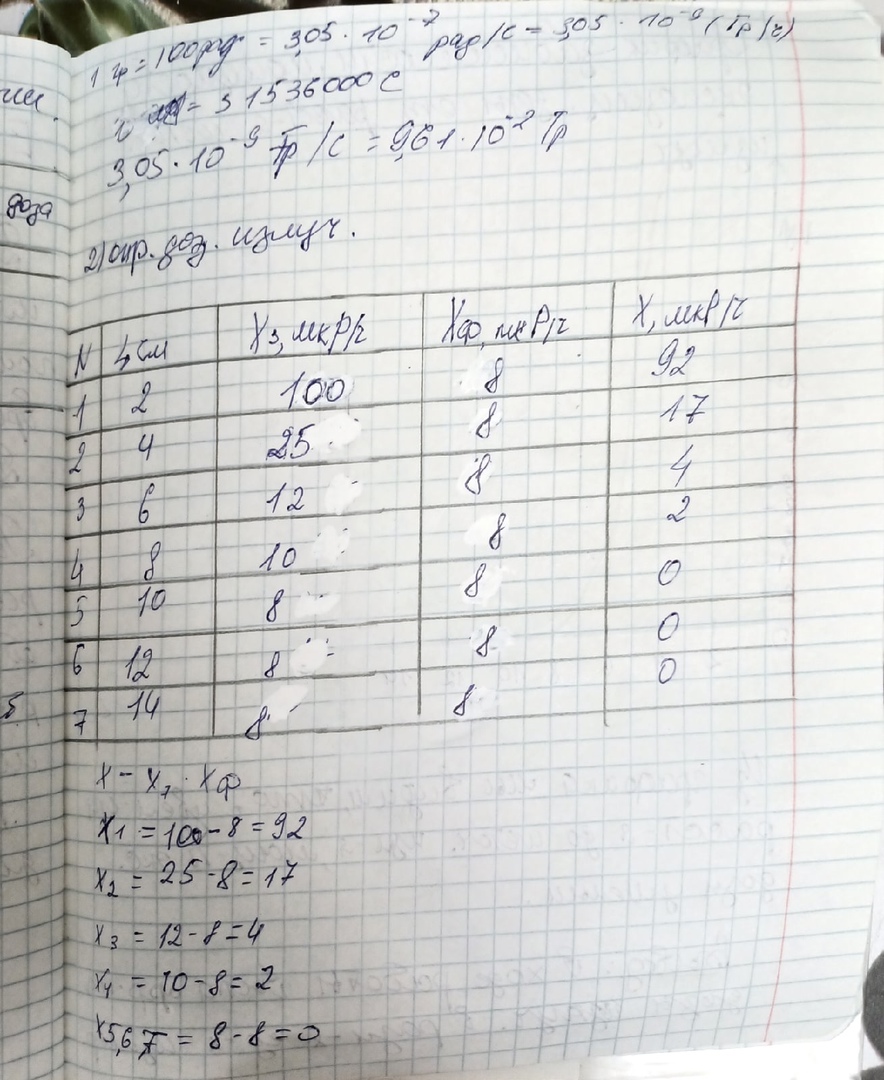 1 гр = 100рад = 3,05 · 10⁻⁷ рад/с = 3,05 · 10⁻⁹ (Гр/ч)
= 31536000 с
3,05 · 10⁻⁹ Гр/с = 9,61 · 10⁻² Гр
доза
2) опр. доз. излуч.
N L, см Xз, мкР/ч Xф, мкР/ч X, мкР/ч
1 2 100 8 92
2 4 25 8 17
3 6 12 8 4
4 8 10 8 2
5 10 8 8 0
6 12 8 8 0
7 14 8 8
X - X₇ · Xф
X₁ = 100 - 8 = 92
X₂ = 25 - 8 = 17
X₃ = 12 - 8 = 4
X₄ = 10 - 8 = 2
X5,6,7 = 8 - 8 = 0